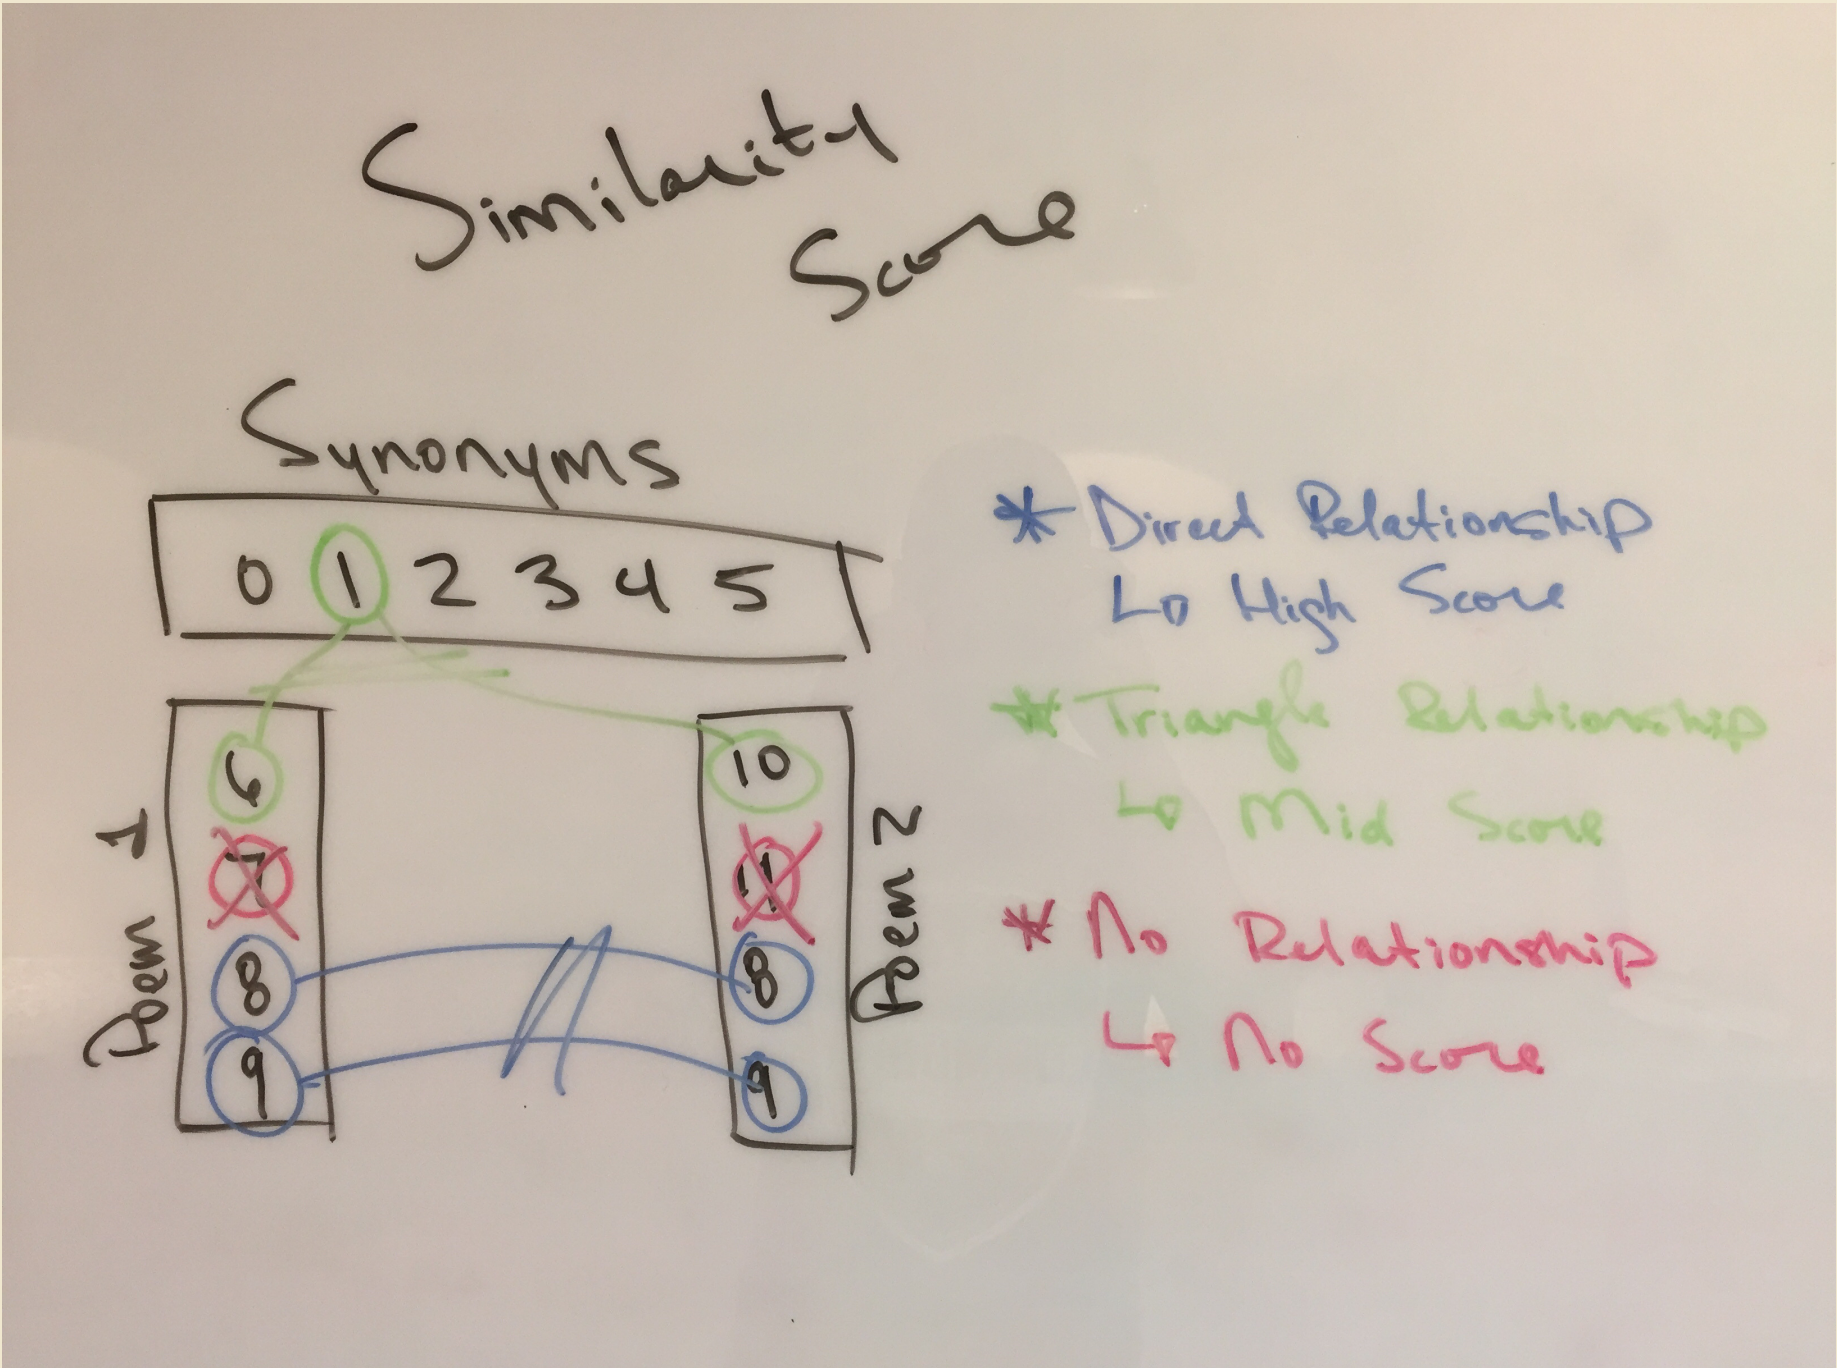 Similarity
Score
Synonyms
0 1 2 3 4 5
Poem 1
6
7
8
9
10
11
8
9
Poem 2
* Direct Relationship
↳ High Score
* Triangle Relationship
↳ Mid Score
* No Relationship
↳ No Score